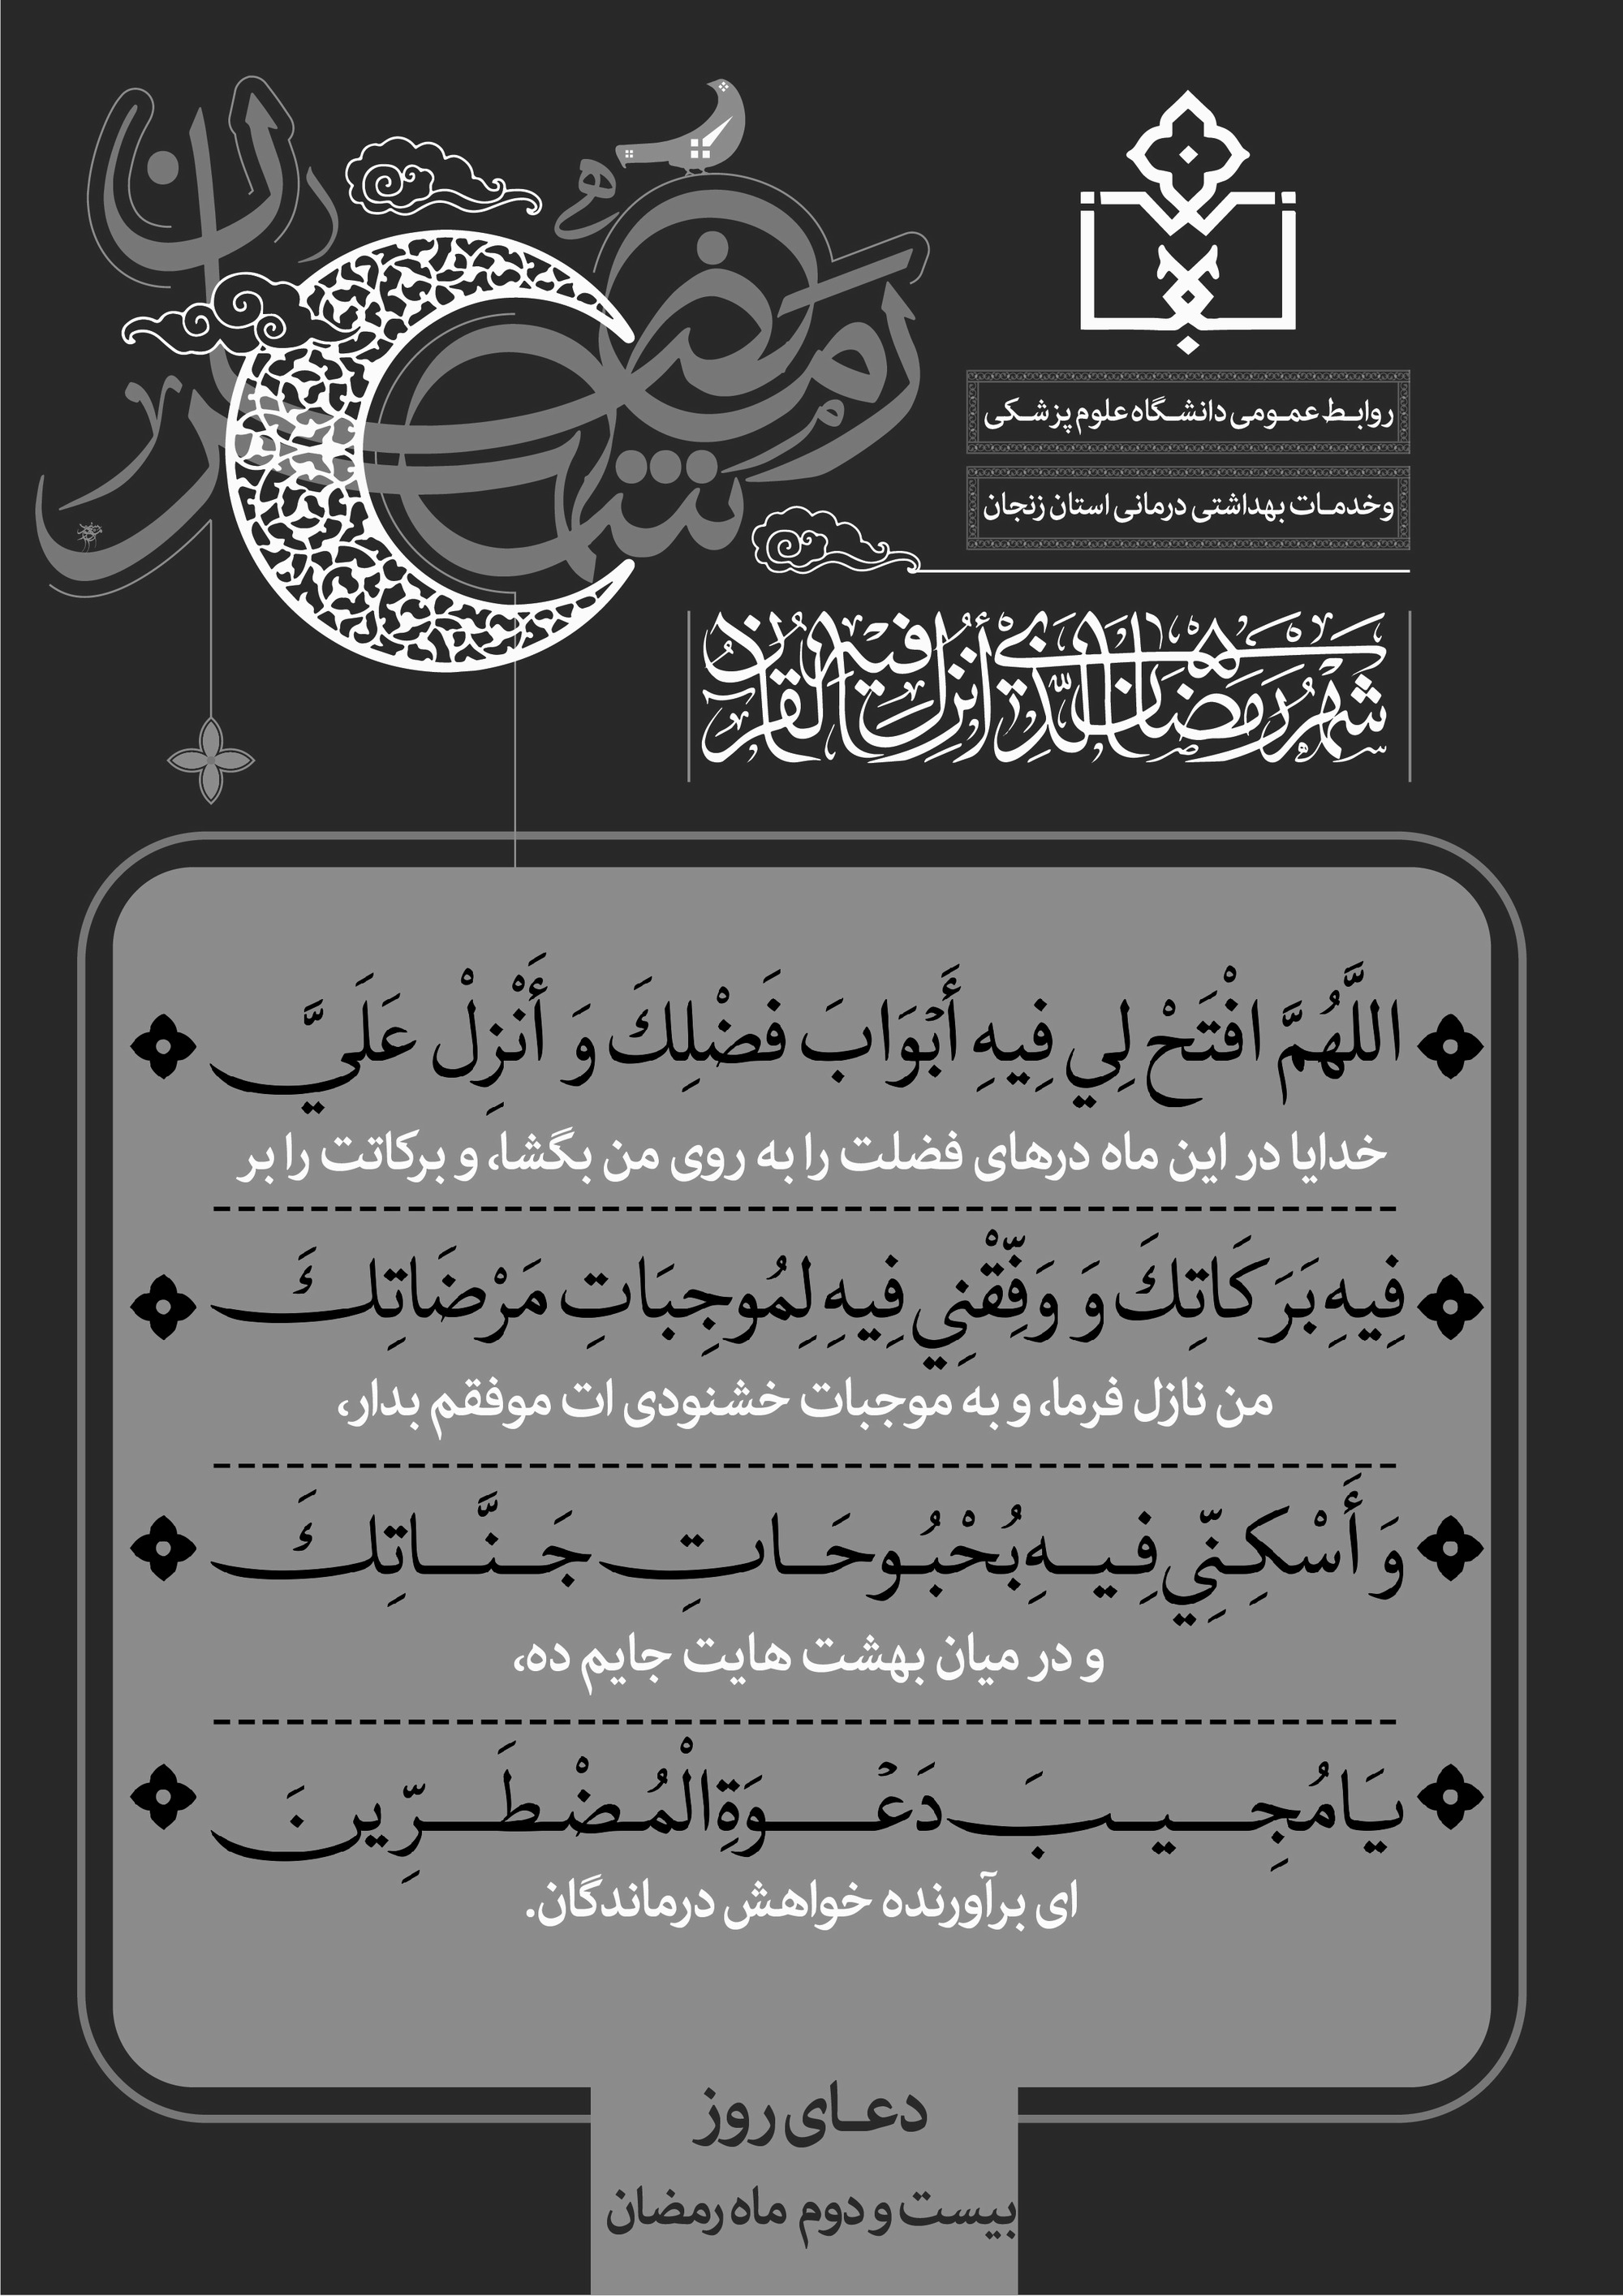 شهر رمضان
روابط عمومی دانشگاه علوم پزشکی
وخدمات بهداشتی درمانی استان زنجان
شهر رمضان الذی أنزل فیه القرآن
اللَّهُمَّ افْتَحْ لِي فِيهِ أَبْوَابَ فَضْلِكَ وَ أَنْزِلْ عَلَيَّ
خدایا در این ماه درهای فضلت را به روی من بگشا، و برکاتت را بر
فِيهِ بَرَكَاتِكَ وَ وَفِّقْنِي فِيهِ لِمُوجِبَاتِ مَرْضَاتِكَ
من نازل فرما، و به موجبات خشنودی ات موفقم بدار،
وَ أَسْكِنِّي فِيهِ بُحْبُوحَاتِ جَنَّاتِكَ
و در میان بهشت هایت جایم ده،
يَا مُجِيبَ دَعْوَةِ الْمُضْطَرِّينَ
ای برآورنده خواهش درماندگان.
دعای روز
بیست و دوم ماه رمضان